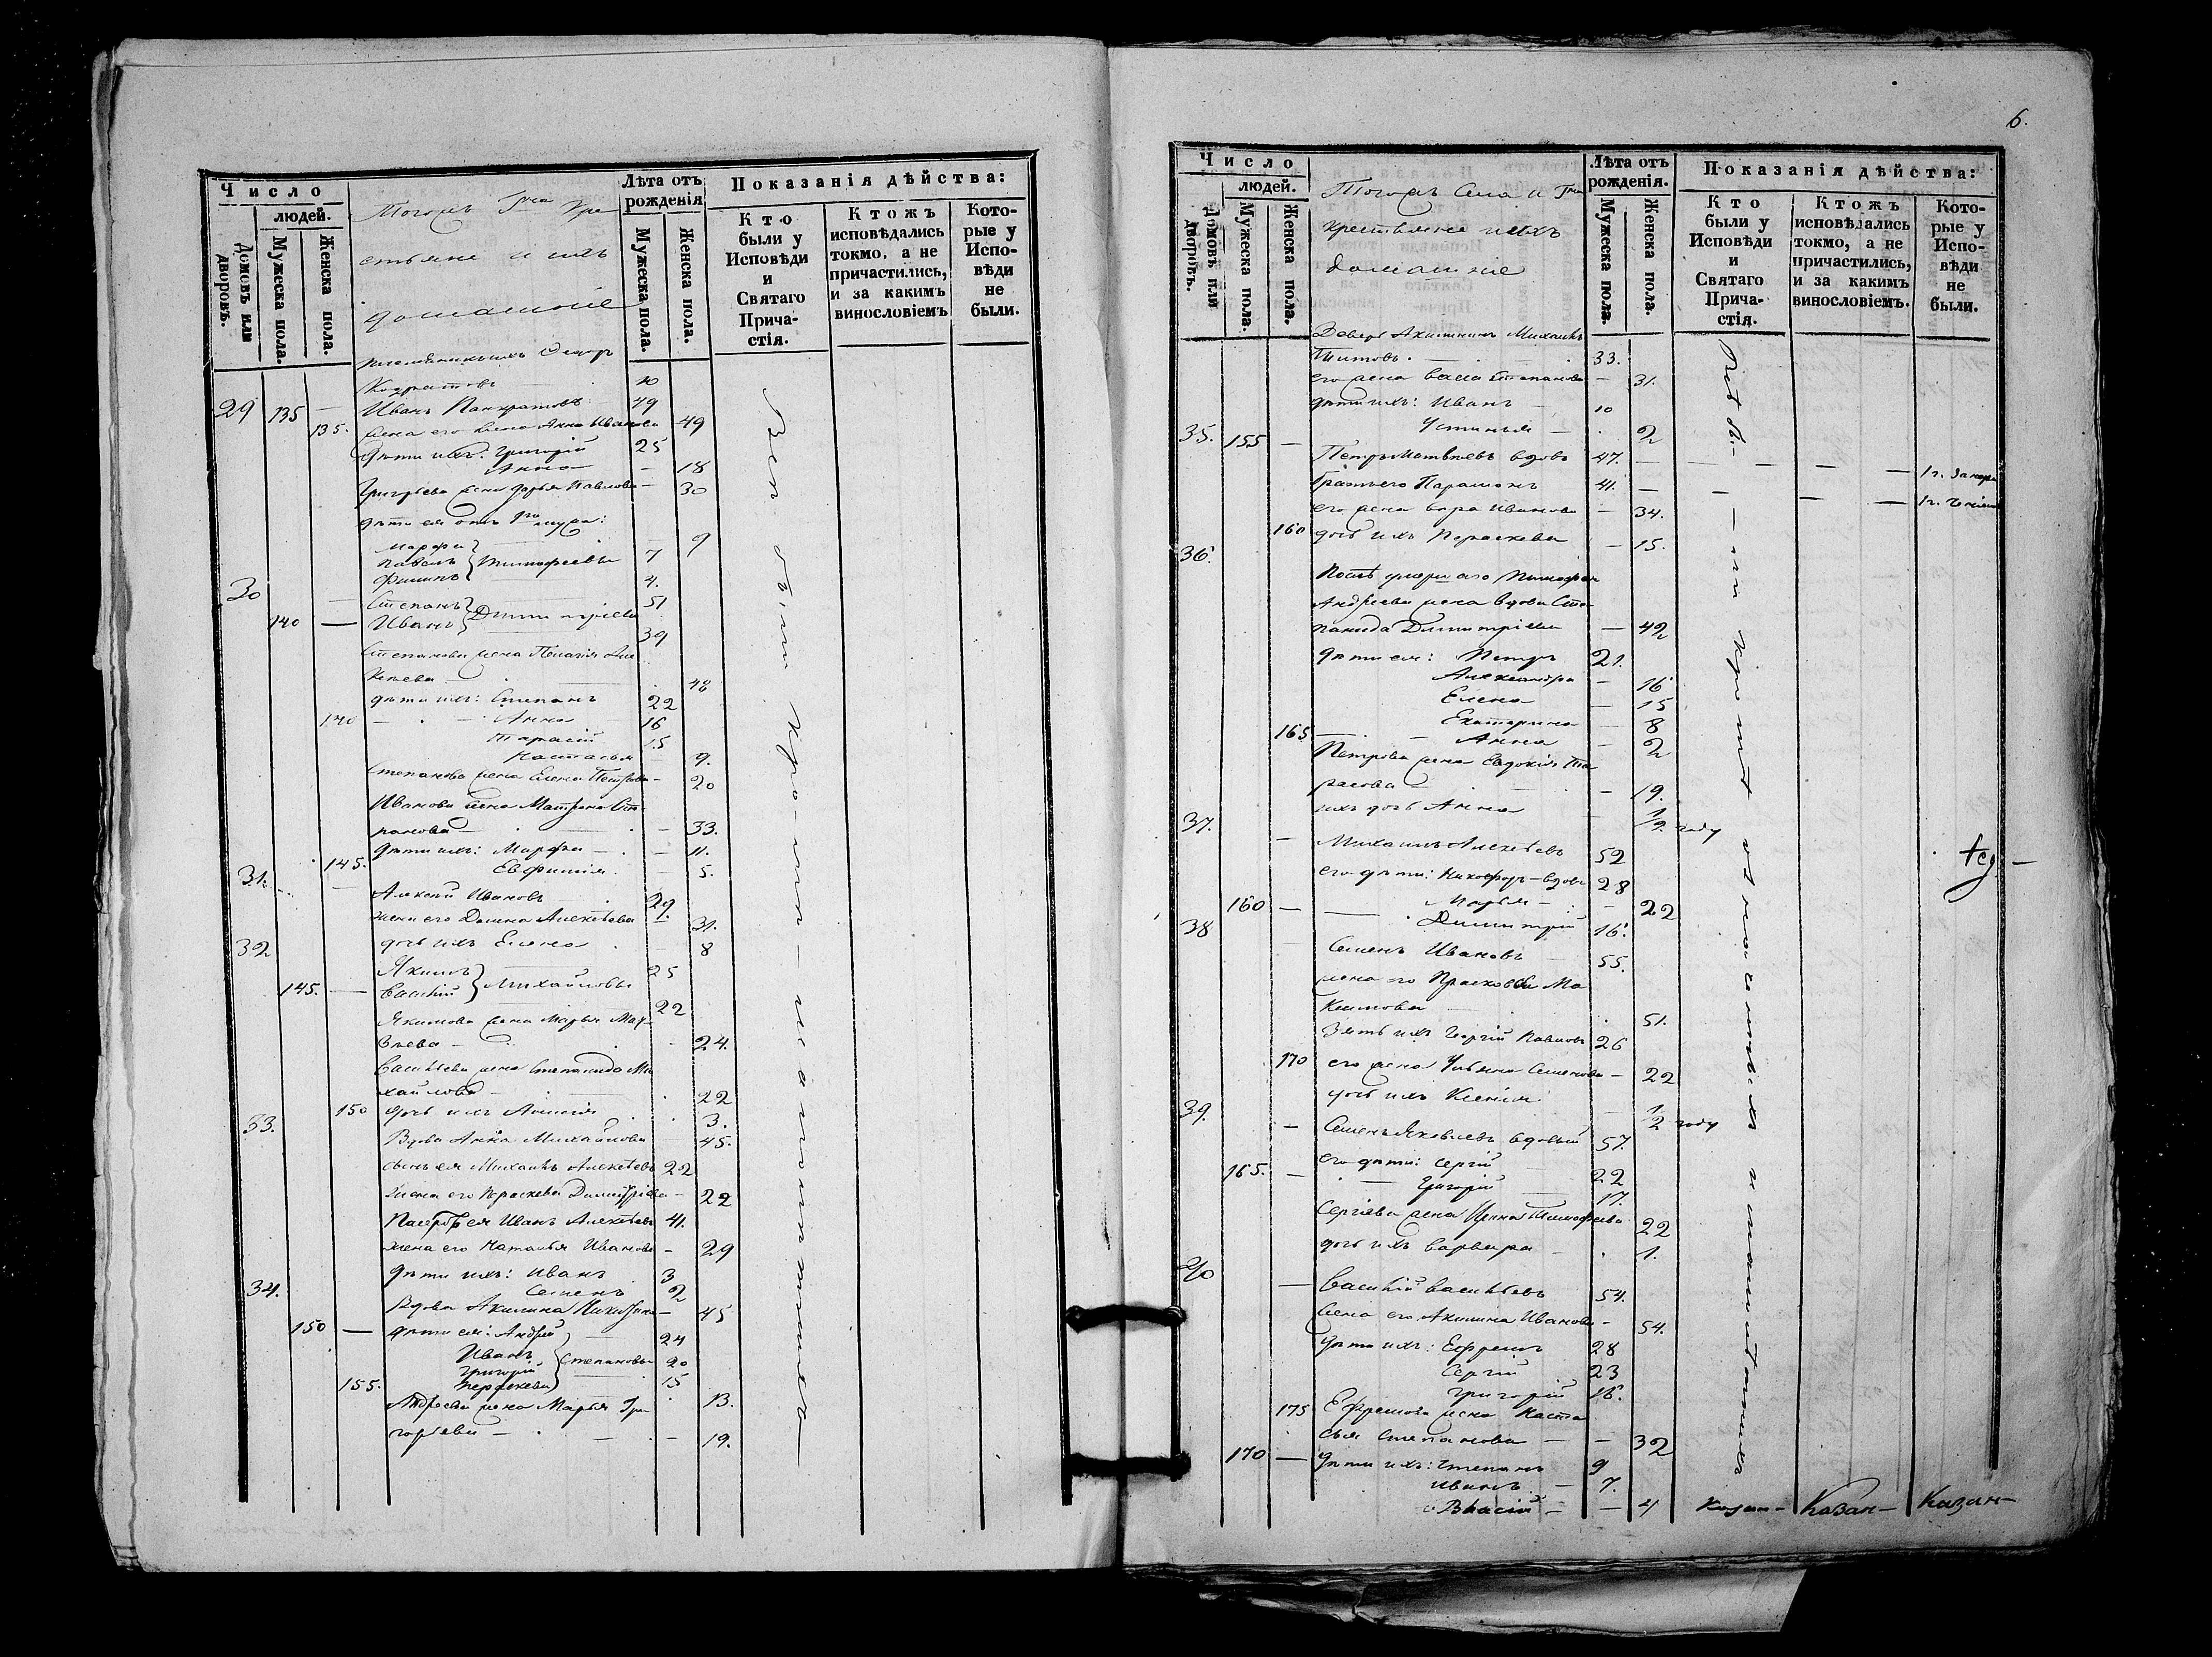 Число
людей.
Домовъ или дворовъ.
Мужеска пола.
Женска пола.
Тогожъ Гна Кре
стьяне и ихъ
домашніе
Лѣта отъ рожденія
Мужеска пола.
Женска пола.
Показанія дѣйства:
Кто были у Исповѣди и Святаго Причастія.
Ктожъ исповѣдались токмо, а не причастились, и за какимъ винословіемъ
Которые у Исповѣди не были.
племянникъ ихъ
10
29 135 — Иванъ Панкратовъ 49
135. жена его Анна Иванова 49
дѣти ихъ: Григорій 25
Анна — 18
Григорьева жена Дарья Павлова — 30
дѣти ея отъ 1го мужа:
Марфа 9
Павелъ } Тимофеевы 7
Филипъ 4.
30 — Степанъ 51
140 — Иванъ } Димитріевы 39
Степанова жена Пелагія Але
кѣева — 48
дѣти ихъ: Степанъ 22
140 — Анна 16
Тарасій 15
Настасья 9.
Степанова жена Елена Петрова — 20
Иванова жена Матрена Сте
панова — 33.
дѣти ихъ: Марфа — 11.
145. Евфимія — 5.
31. — Алексѣй Ивановъ 29
жена его Домна Алексѣева 31.
дочь ихъ Елена 8
32 Якимъ 25
145. — Василій } Михайловы 22
Якимова жена Марья Мат
вѣева — 24.
Васильева жена Степанида Ми
хайлова — 22
150 дочь ихъ Анисія 3.
33. Вдова Анна Михайлова 45.
сынъ ея Михаилъ Алексѣевъ 22
жена его Параскева Димитріева — 22
Иванъ Алексѣевъ 41.
жена его Наталья Иванова — 29
дѣти ихъ: Иванъ 3
Семенъ 2
34. Вдова Акилина Никитина — 45
150 — дѣти ея: Андрей 24
Иванъ } Степановы 20
Григорій 15
155. Параскева 13.
Андреева жена Марья Гри
горьева — 19.
6.
Число
людей.
Домовъ или дворовъ.
Мужеска пола.
Женска пола.
Тогожъ Села и Гна
крестьяне и ихъ
домашніе
Лѣта отъ рожденія.
Мужеска пола.
Женска пола.
Показанія дѣйства:
Кто были у Исповѣди и Святаго Причастія.
Ктожъ исповѣдались токмо, а не причастились, и за какимъ винословіемъ.
Которые у Исповѣди не были.
Михаилъ
Титовъ. 33.
его жена Степанова — 31.
дѣти ихъ: Иванъ 10
Устинья — 2
35. 155 — Петръ Матвѣевъ вдовъ 47. —
братъ его Парамонъ 41. —
его жена Вара Иванова — 34.
160 дочь ихъ Параскева — 15.
36.
Андреева жена вдова Сте
панида Димитріева — 42
дѣти ея: Петръ 21.
Александра — 16
Елена — 15
Екатерина — 8
165 — Анна — 2
Петрова жена Евдокія Та
расова — 19.
ихъ дочь Анна 1/2 году
37. — Михаилъ Алексѣевъ 52
его дѣти: Никифоръ — вдовъ 28
160 — Марья — 22
Димитрій 16.
38 Семенъ Ивановъ 55.
жена его Прасковья Ма
ксимова 51.
Зять ихъ Георгій Павловъ 26
170 его жена Ульяна Семенова — 22
дочь ихъ Ксенія 1/2 году
39. — Семенъ Яковлевъ вдовый 57.
его дѣти: Сергій 22
165. — Григорій 17.
Сергіева жена Ирина Тимофеева 22
дочь ихъ Варвара — 1.
40 — Василій Васильевъ 54.
жена его Акилина Иванова — 54.
дѣти ихъ: Ефремъ 28
Сергій 23
Григорій 16.
175 Ефремова жена Наста
сья Степанова — 32
170 — дѣти ихъ: Степанъ 9
Иванъ 7.
Власій — 4
Казан— Казан— Казан—